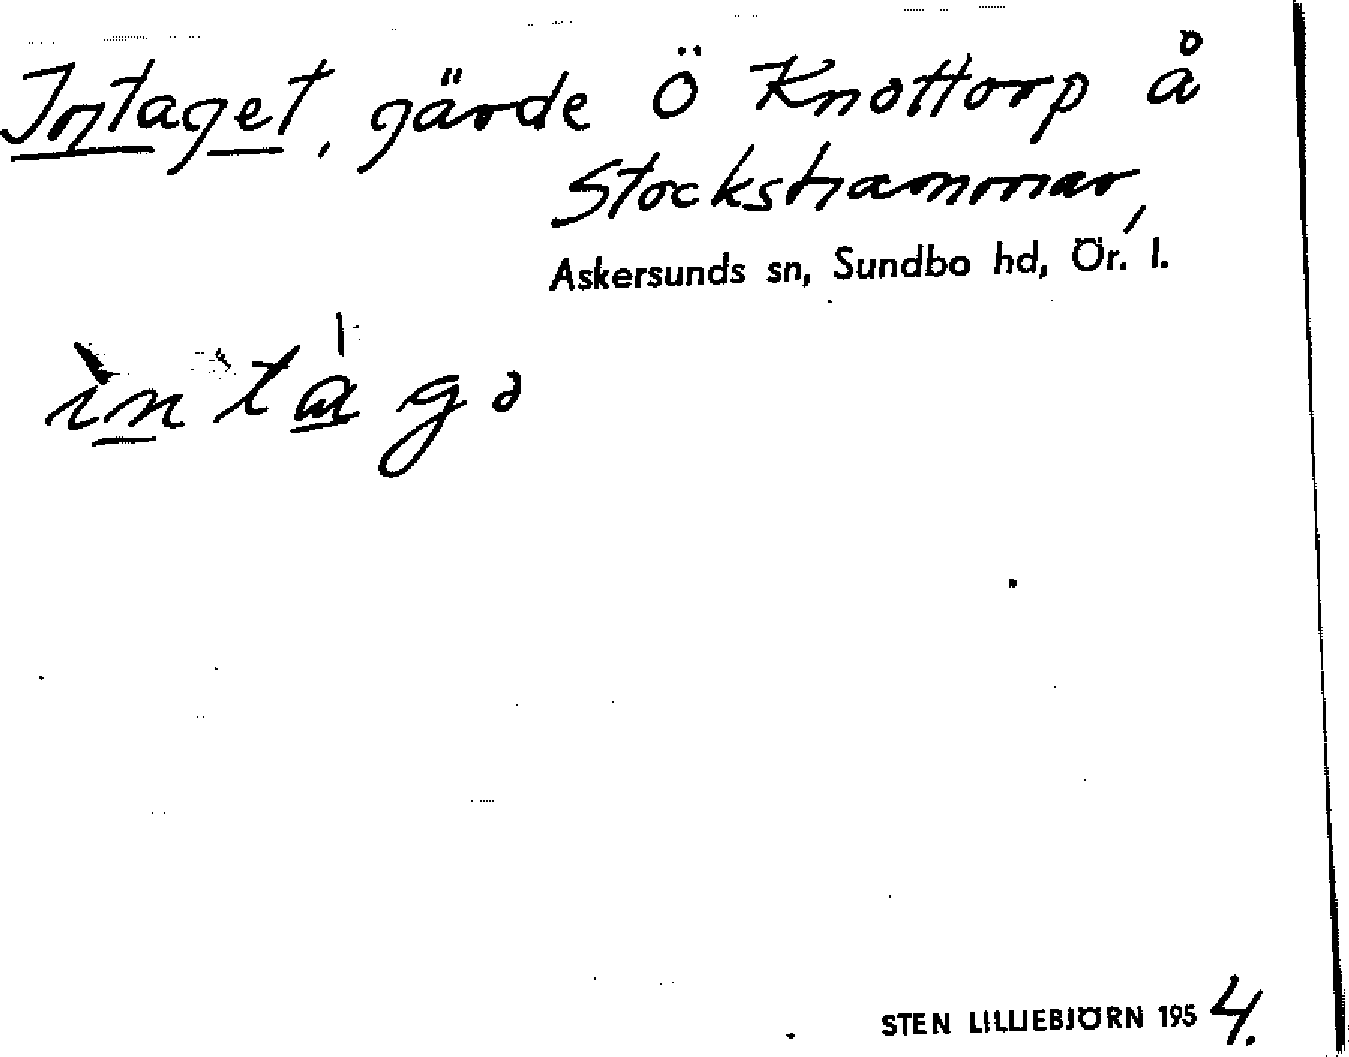 Intaget, gärde Ö Knottorp å
Stockshammar,
Askersunds sn, Sundbo hd, Ör. l.
STEN LILLIEBJÖRN 1954.